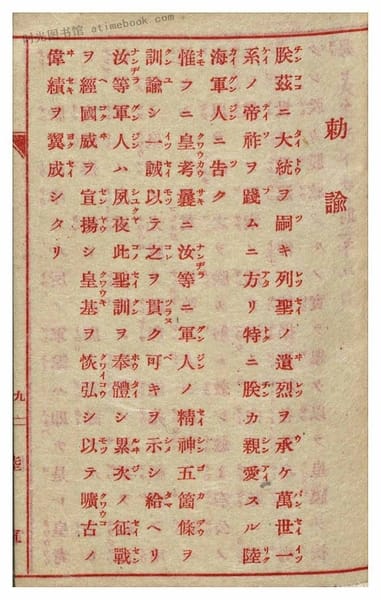 时光图书馆 atimebook.com
勅諭
朕茲ニ大統ヲ嗣キ列聖ノ遺烈ヲ承ケ萬世一
系ノ帝祚ヲ踐ムニ方リ特ニ朕カ親愛スル陸
海軍人ニ告ク
惟フニ皇考曩ニ汝等ニ軍人ノ精神五箇條ヲ
訓諭シ一誠以テ之ヲ貫ク可キヲ示シ給ヘリ
汝等軍人ハ夙夜此聖訓ヲ奉體シ累次ノ征戰
ヲ經國威ヲ宣揚シ皇基ヲ恢弘シ以テ曠古ノ
偉績ヲ翼成シタリ
九